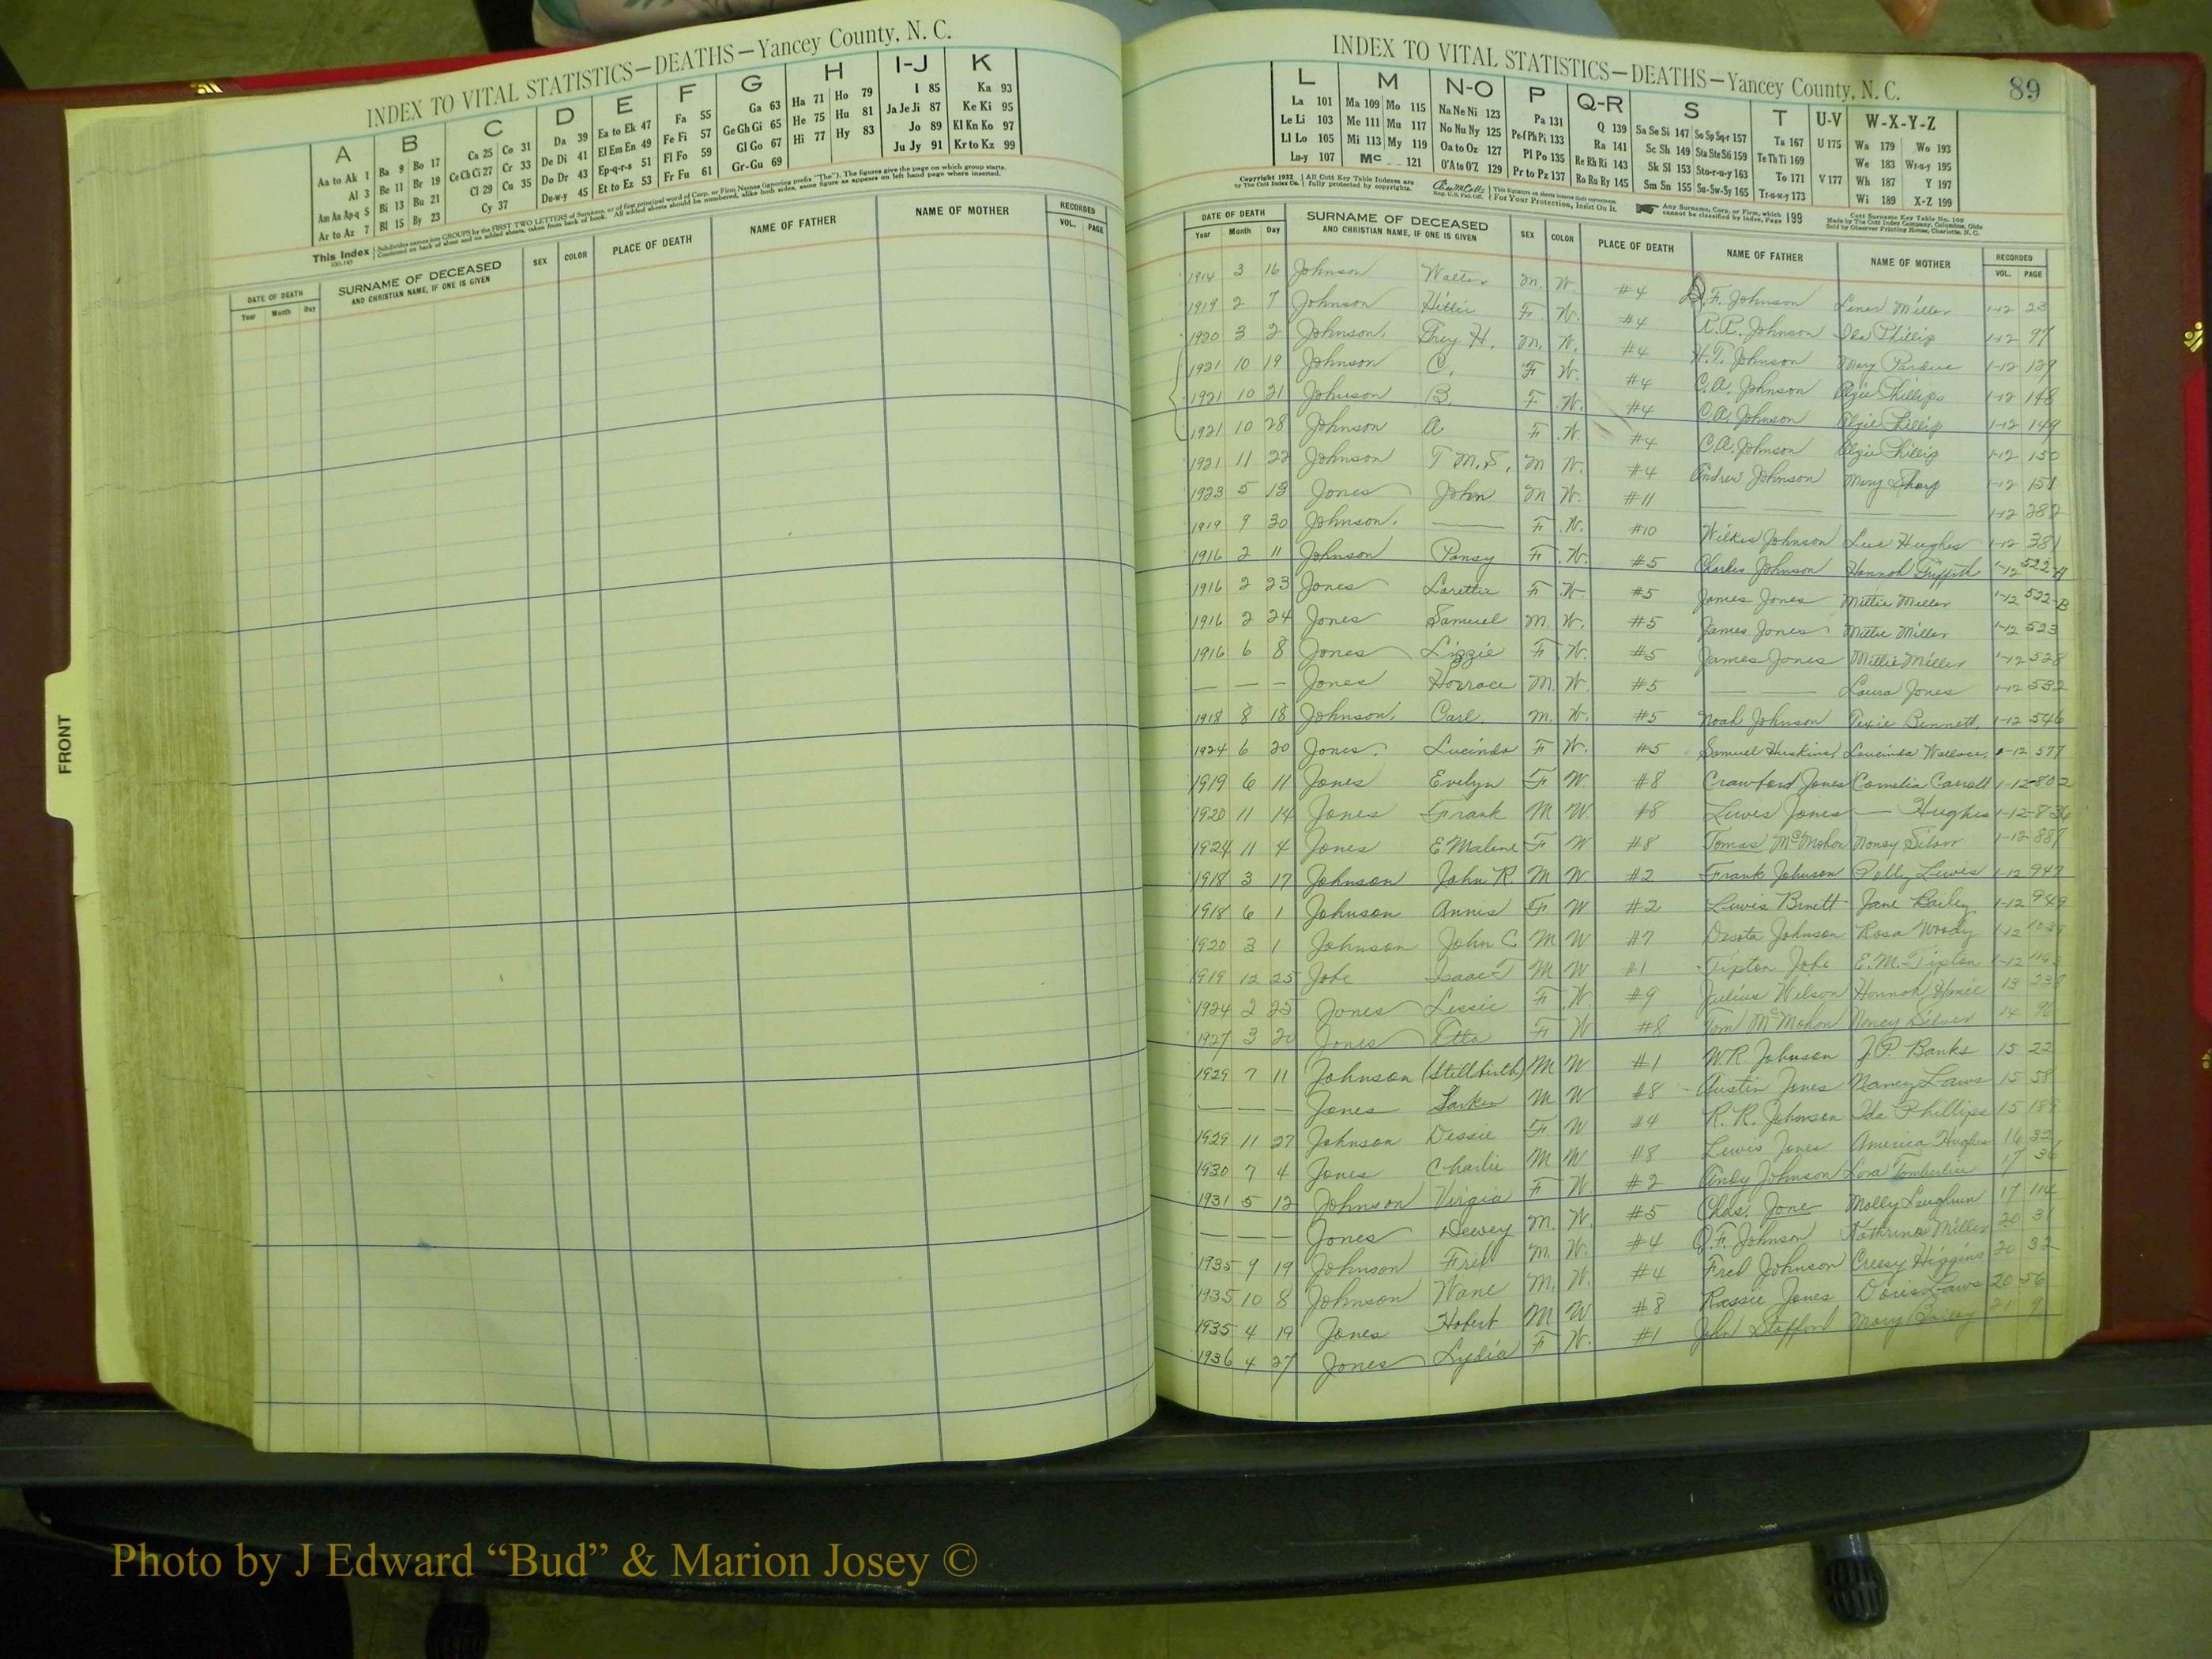 INDEX TO VITAL STATISTICS—DEATHS—Yancey County, N. C.
A B C D E F G H I-J K
Aa to Ak 1 Ba 9 Bo 17 Ca 25 Co 31 Da 39 Ea to Ek 47 Fa 55 Ga 63 Ha 71 Ho 79 I 85 Ka 93
Al 3 Be 11 Br 19 Ce Ch Ci 27 Cr 33 De Di 41 El Em En 49 Fe Fi 57 Ge Gh Gi 65 He 75 Hu 81 Ja Je Ji 87 Ke Ki 95
Am An Ap-q 5 Bi 13 Bu 21 Cl 29 Cu 35 Do Dr 43 Ep-q-r-s 51 Fl Fo 59 Gl Go 67 Hi 77 Hy 83 Jo 89 Kl Kn Ko 97
Ar to Az 7 Bl 15 By 23 Cy 37 Du-w-y 45 Et to Ez 53 Fr Fu 61 Gr-Gu 69 Ju Jy 91 Kr to Kz 99
This Index
DATE OF DEATH SURNAME OF DECEASED SEX COLOR PLACE OF DEATH NAME OF FATHER NAME OF MOTHER RECORDED
Year Month Day AND CHRISTIAN NAME, IF ONE IS GIVEN VOL. PAGE
FRONT
INDEX TO VITAL STATISTICS—DEATHS—Yancey County, N. C. 89
L M N-O P Q-R S T U-V W-X-Y-Z
La 101 Ma 109 Mo 115 Na Ne Ni 123 Pa 131 Q 139 Sa Se Si 147 So Sp Sq-r 157 Ta 167 U 175 Wa 179 Wo 193
Le Li 103 Me 111 Mu 117 No Nu Ny 125 Pe-f Ph Pi 133 Ra 141 Sc Sh 149 Sta Ste Sti 159 Te Th Ti 169 We 183 Wr-u-y 195
Ll Lo 105 Mi 113 My 119 Oa to Oz 127 Pl Po 135 Re Rh Ri 143 Sk Sl 153 Sto-r-u-y 163 To 171 V 177 Wh 187 Y 197
Lu-y 107 Mc 121 O'A to O'Z 129 Pr to Pz 137 Ro Ru Ry 145 Sm Sn 155 Su-Sw-Sy 165 Tr-u-w-y 173 Wi 189 X-Z 199
Copyright 1932 by The Cott Index Co. All Cott Key Table Indexes are fully protected by copyrights. For Your Protection, Insist On It. Any Surname, Corp, or Firm, which cannot be classified by index, Page 199
DATE OF DEATH SURNAME OF DECEASED SEX COLOR PLACE OF DEATH NAME OF FATHER NAME OF MOTHER RECORDED
Year Month Day AND CHRISTIAN NAME, IF ONE IS GIVEN VOL. PAGE
1914 3 16 Johnson Walter M. W. #4 F. Johnson Lener Miller 1-12 23
1919 2 7 Johnson Hittie F. W. #4 R.R. Johnson Ida Phillip 1-12 97
1920 3 2 Johnson, Trey H. M. W. #4 H.T. Johnson Mary Pardue 1-12 129
1921 10 19 Johnson C. F W. #4 C.A. Johnson Olzie Phillips 1-12 148
1921 10 21 Johnson B. F W. #4 C.A. Johnson Olzie Phillip 1-12 149
1921 10 28 Johnson A F W #4 C.A. Johnson Olzie Phillip 1-12 150
1921 11 22 Johnson T M.S. M W. #4 Andrew Johnson Mary Sharp 1-12 151
1923 5 13 Jones John M W. #11 — — 1-12 282
1919 9 30 Johnson. — F W. #10 Wilkes Johnson Lue Hughes 1-12 381
1916 2 11 Johnson Pansy F W. #5 Charles Johnson Hannah Griffith 1-12 522-A
1916 2 23 Jones Loretta F W #5 James Jones Mittie Miller 1-12 522-B
1916 2 24 Jones Samuel M. W. #5 James Jones Mittie Miller 1-12 523
1916 6 8 Jones Lizzie F W. #5 James Jones Mittie Miller 1-12 528
— — — Jones Horrace M. W. #5 — Laura Jones 1-12 532
1918 8 18 Johnson, Carl. M. W. #5 Noah Johnson Texie Bennett. 1-12 546
1924 6 20 Jones. Lucinda F W. #5 Samuel Huskins Loucinda Wallace. 1-12 577
1919 6 11 Jones Evelyn F W. #8 Crawford Jones Cornelia Carroll 1-12-802
1920 11 14 Jones Frank M W. #8 Lewis Jones — Hughes 1-12-836
1924 11 4 Jones E Maline F W #8 Tomas McMohon Noncy Silver 1-12 887
1918 3 17 Johnson John R. M W. #2 Frank Johnson Polly Lewis 1-12 947
1918 6 1 Johnson Annis F W #2 Lewis Bnett Jane Bailey 1-12 949
1920 3 1 Johnson John C M W #7 Desota Johnson Rosa Woody 1-12
1919 12 25 Jobe Isaac T M W #1 Tipton Jobe E.M. Tipton 1-12
1924 2 25 Jones Lessie F W #9 Julius Wilson Honnoh 13 238
1927 3 20 Jones Etta F W #8 Tom McMohon Noncy Silver 14 96
1929 7 11 Johnson (Stillbirth) M W #1 W R Johnson J.P. Banks 15 22
— — — Jones Larken M W #8 Austin Jones Nancy Laws 15 58
1929 11 27 Johnson Dessie F W #4 R. R. Johnson Ida Phillips 15 189
1930 7 4 Jones Charlie M W #8 Lewis Jones America Hughes 16 32
1931 5 12 Johnson Virgia F W. #2 Andy Johnson Lora Tomberlin 17 36
— — — Jones Dewey M. W. #5 Chas. Jone Molly Laughrun 17 114
1935 9 19 Johnson Fred M. W. #4 F. Johnson Kathrina Miller 20 31
1935 10 8 Johnson Wane M. W. #4 Fred Johnson Creesy Higgins 20 32
1935 4 19 Jones Hobert M W #8 Rassie Jones Doris Laws 20 56
1936 4 27 Jones Lydia F W. #1 John Stafford Mary 21 9
Photo by J Edward “Bud” & Marion Josey ©